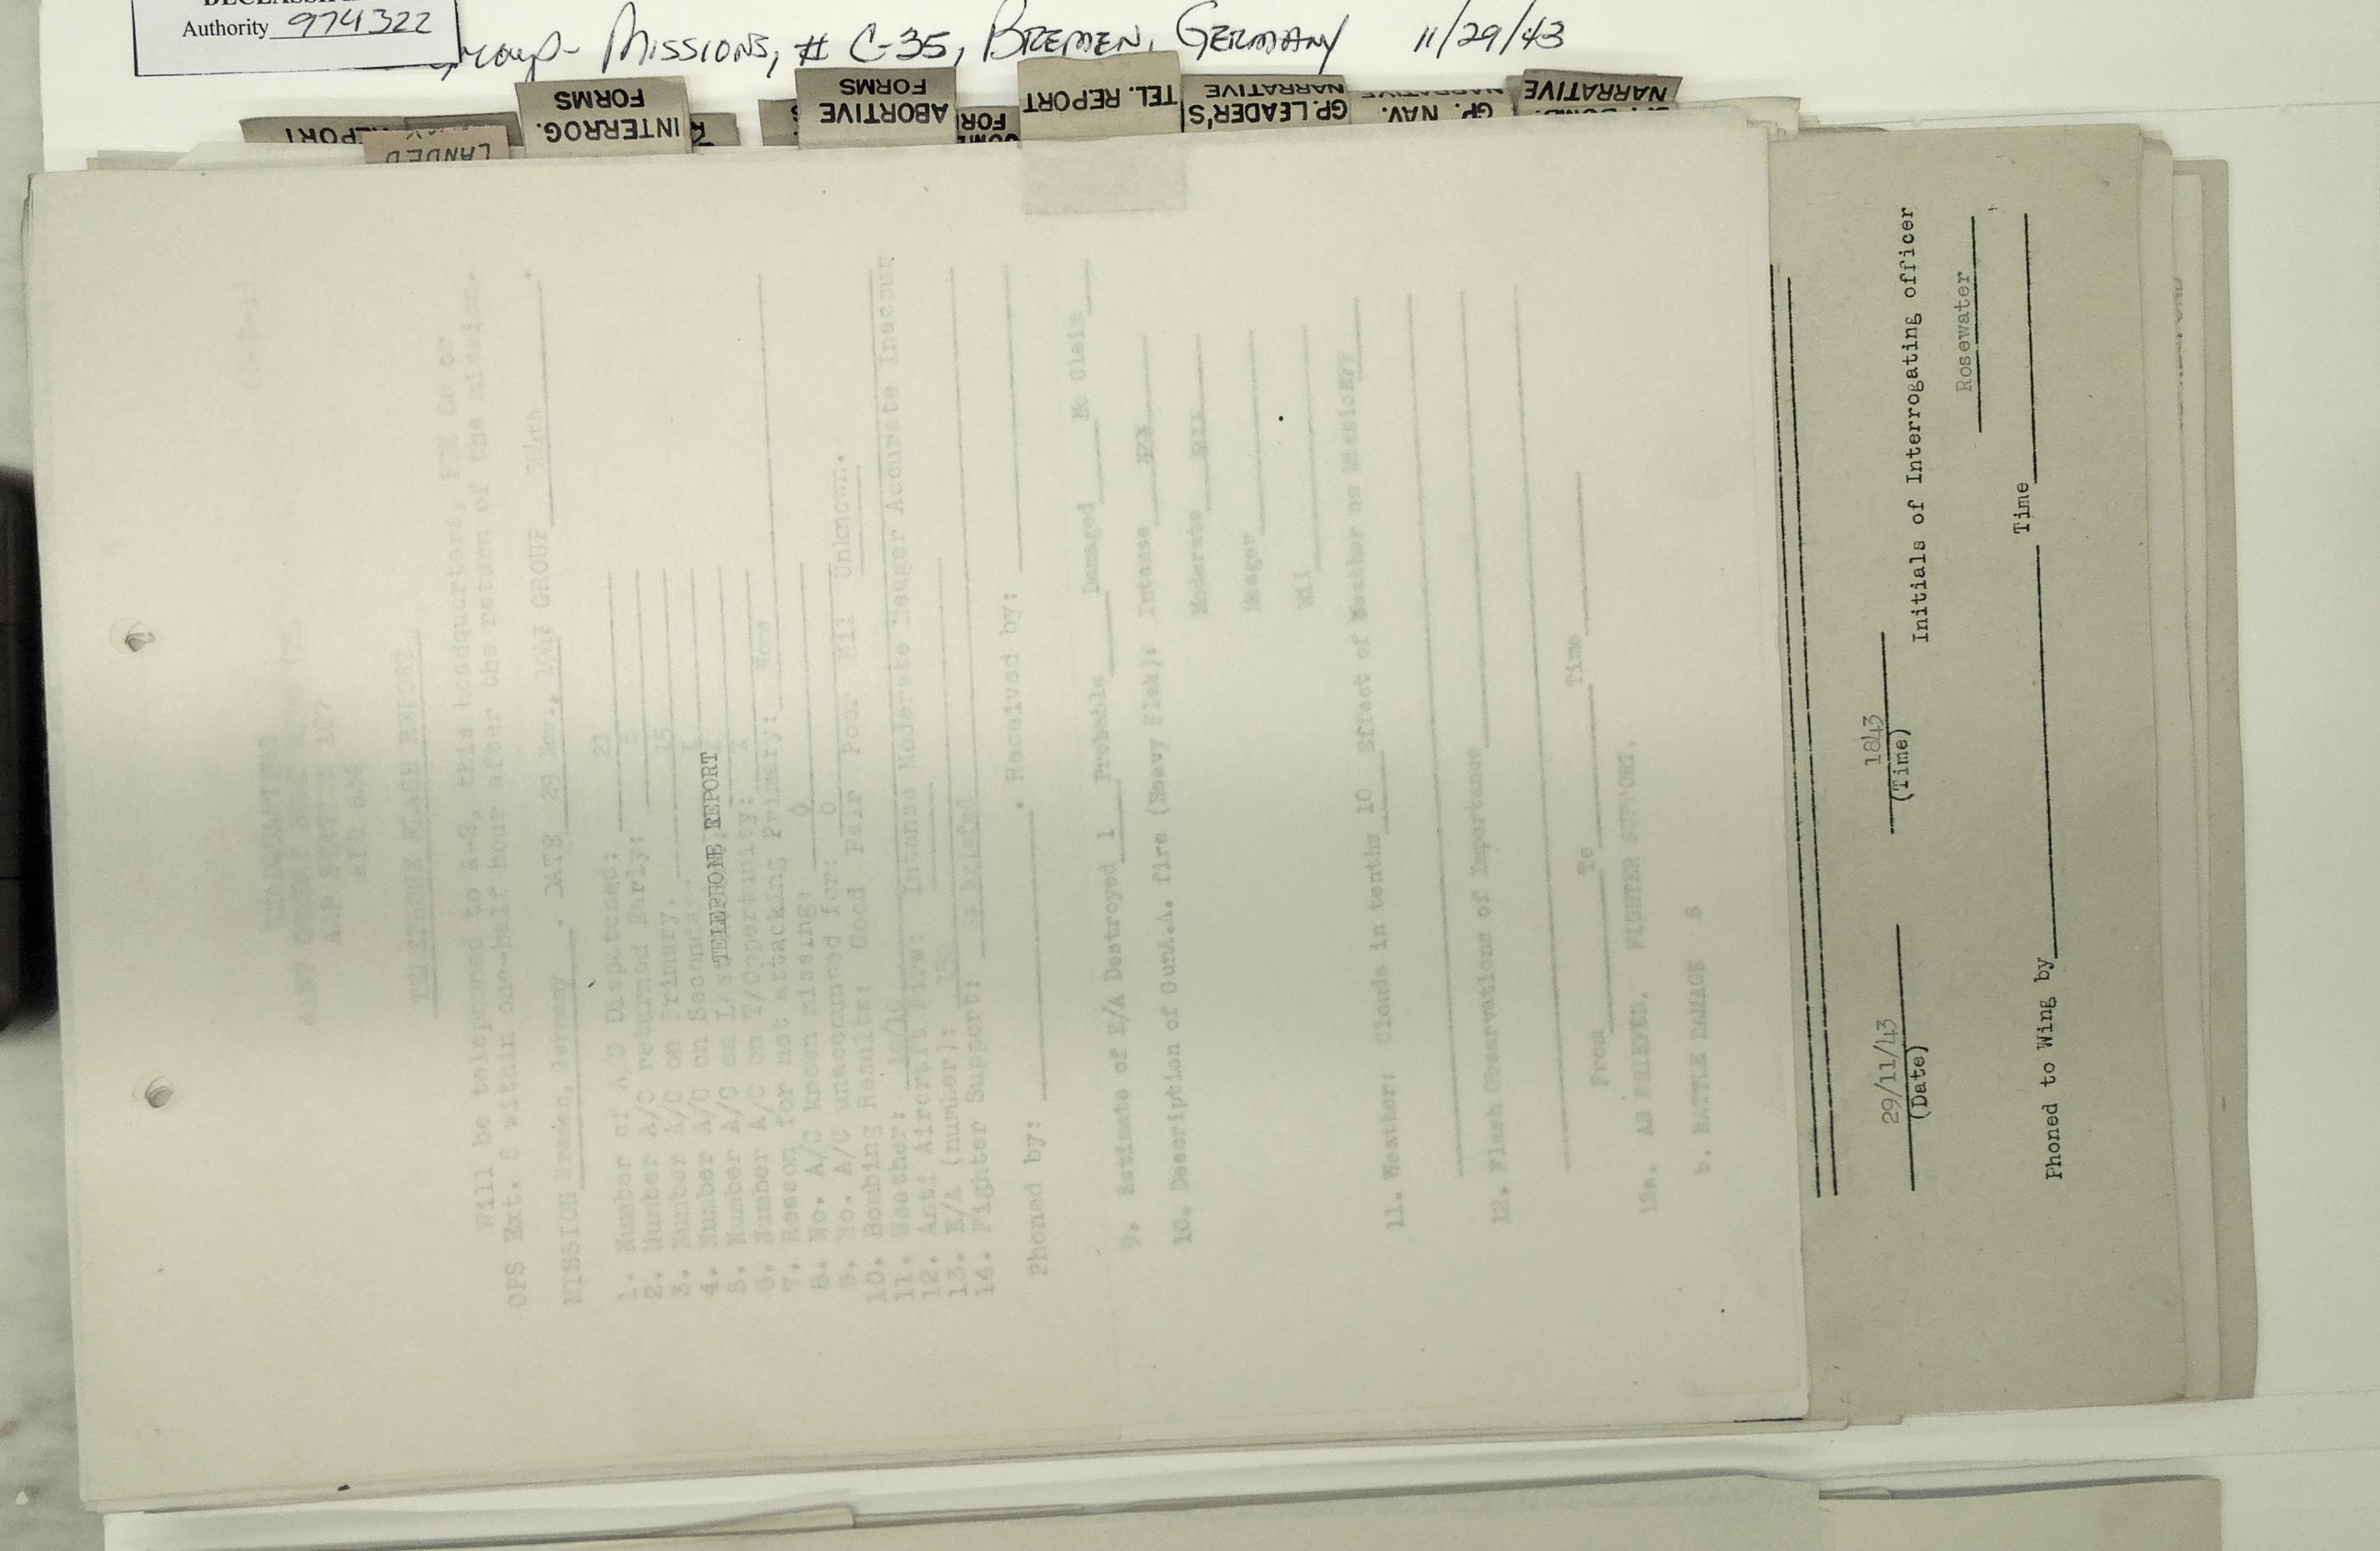 Authority 974322
Group - Missions, # C-35, Bremen, Germany 11/29/43
INTERROG.
FORMS
LANDED
ABORTIVE
FORMS
TEL. REPORT
GP. LEADER'S
NARRATIVE
GP. NAV.
NARRATIVE
NARRATIVE
TELEPHONE REPORT
TELEPHONE FLASH REPORT
Will be telephoned to A-2, this headquarters,
OPS Ext. 5 within one-half hour after the return of the mission.
MISSION Bremen, Germany . DATE 29 Nov., 1943 GROUP
1. Number of A/C Dispatched: 21
2. Number A/C returned Early: 6
3. Number A/C on Primary. 15
4. Number A/C on Secondary.
5. Number A/C on Last
6. Number A/C on T/Opportunity:
7. Reason for not attacking Primary: None
8. No. A/C known missing: 0
9. No. A/C unaccounted for: 0
10. Bombing Results: Good Fair Poor Nil Unknown.
11. Weather: 10/10
12. Anti Aircraft Fire: Intense Moderate Meager Accurate Inaccur
13. E/A (number):
14. Fighter Support: As briefed
Phoned by: . Received by:
9. Estimate of E/A Destroyed 1 Probable Damaged No Claim
10. Description of Gun A.A. fire (Heavy Flak): Intense
Moderate
Meager
Nil
11. Weather: Clouds in tenths 10 Effect of Weather on Mission
12. Flash Observations of Importance
From To Time
12a. AS BRIEFED. FIGHTER SUPPORT.
b. BATTLE DAMAGE 6
29/11/43 1843
(Date) (Time)
Initials of Interrogating officer
Rosewater
Phoned to Wing by Time